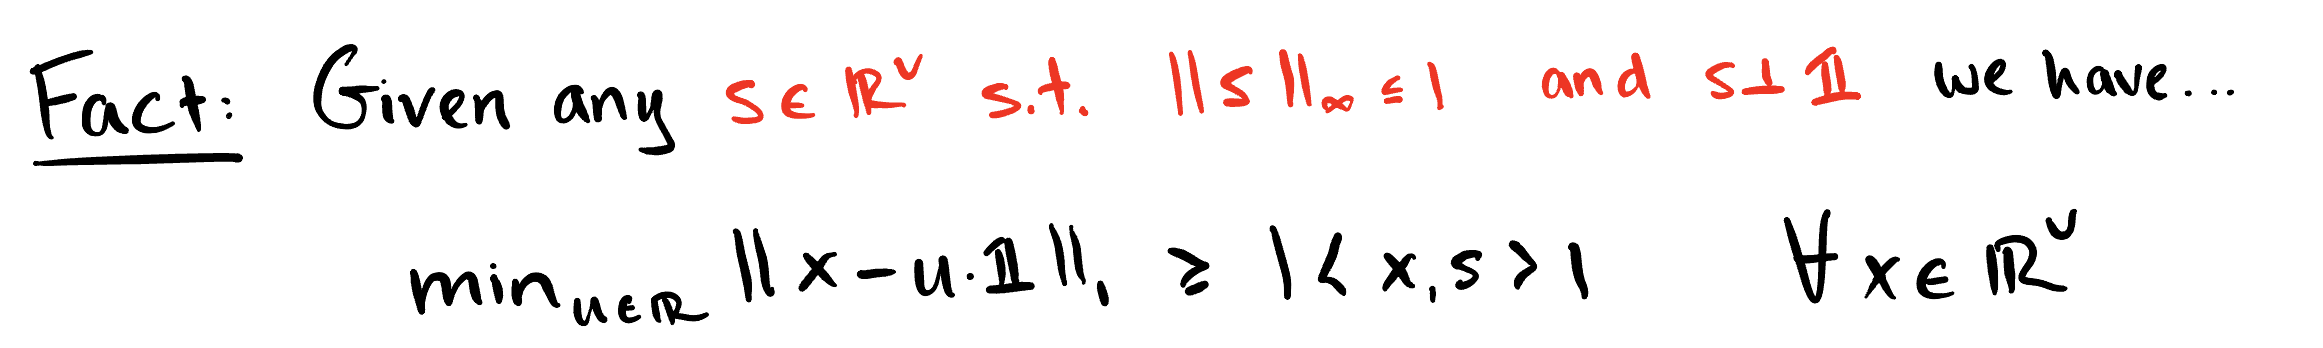 Fact: Given any s ∈ ℝ^V s.t. ||s||_∞ ≤ 1 and s ⊥ 𝟙 we have...
min_{u∈ℝ} ||x - u·𝟙||_1 ≥ |<x,s>| ∀ x ∈ ℝ^V